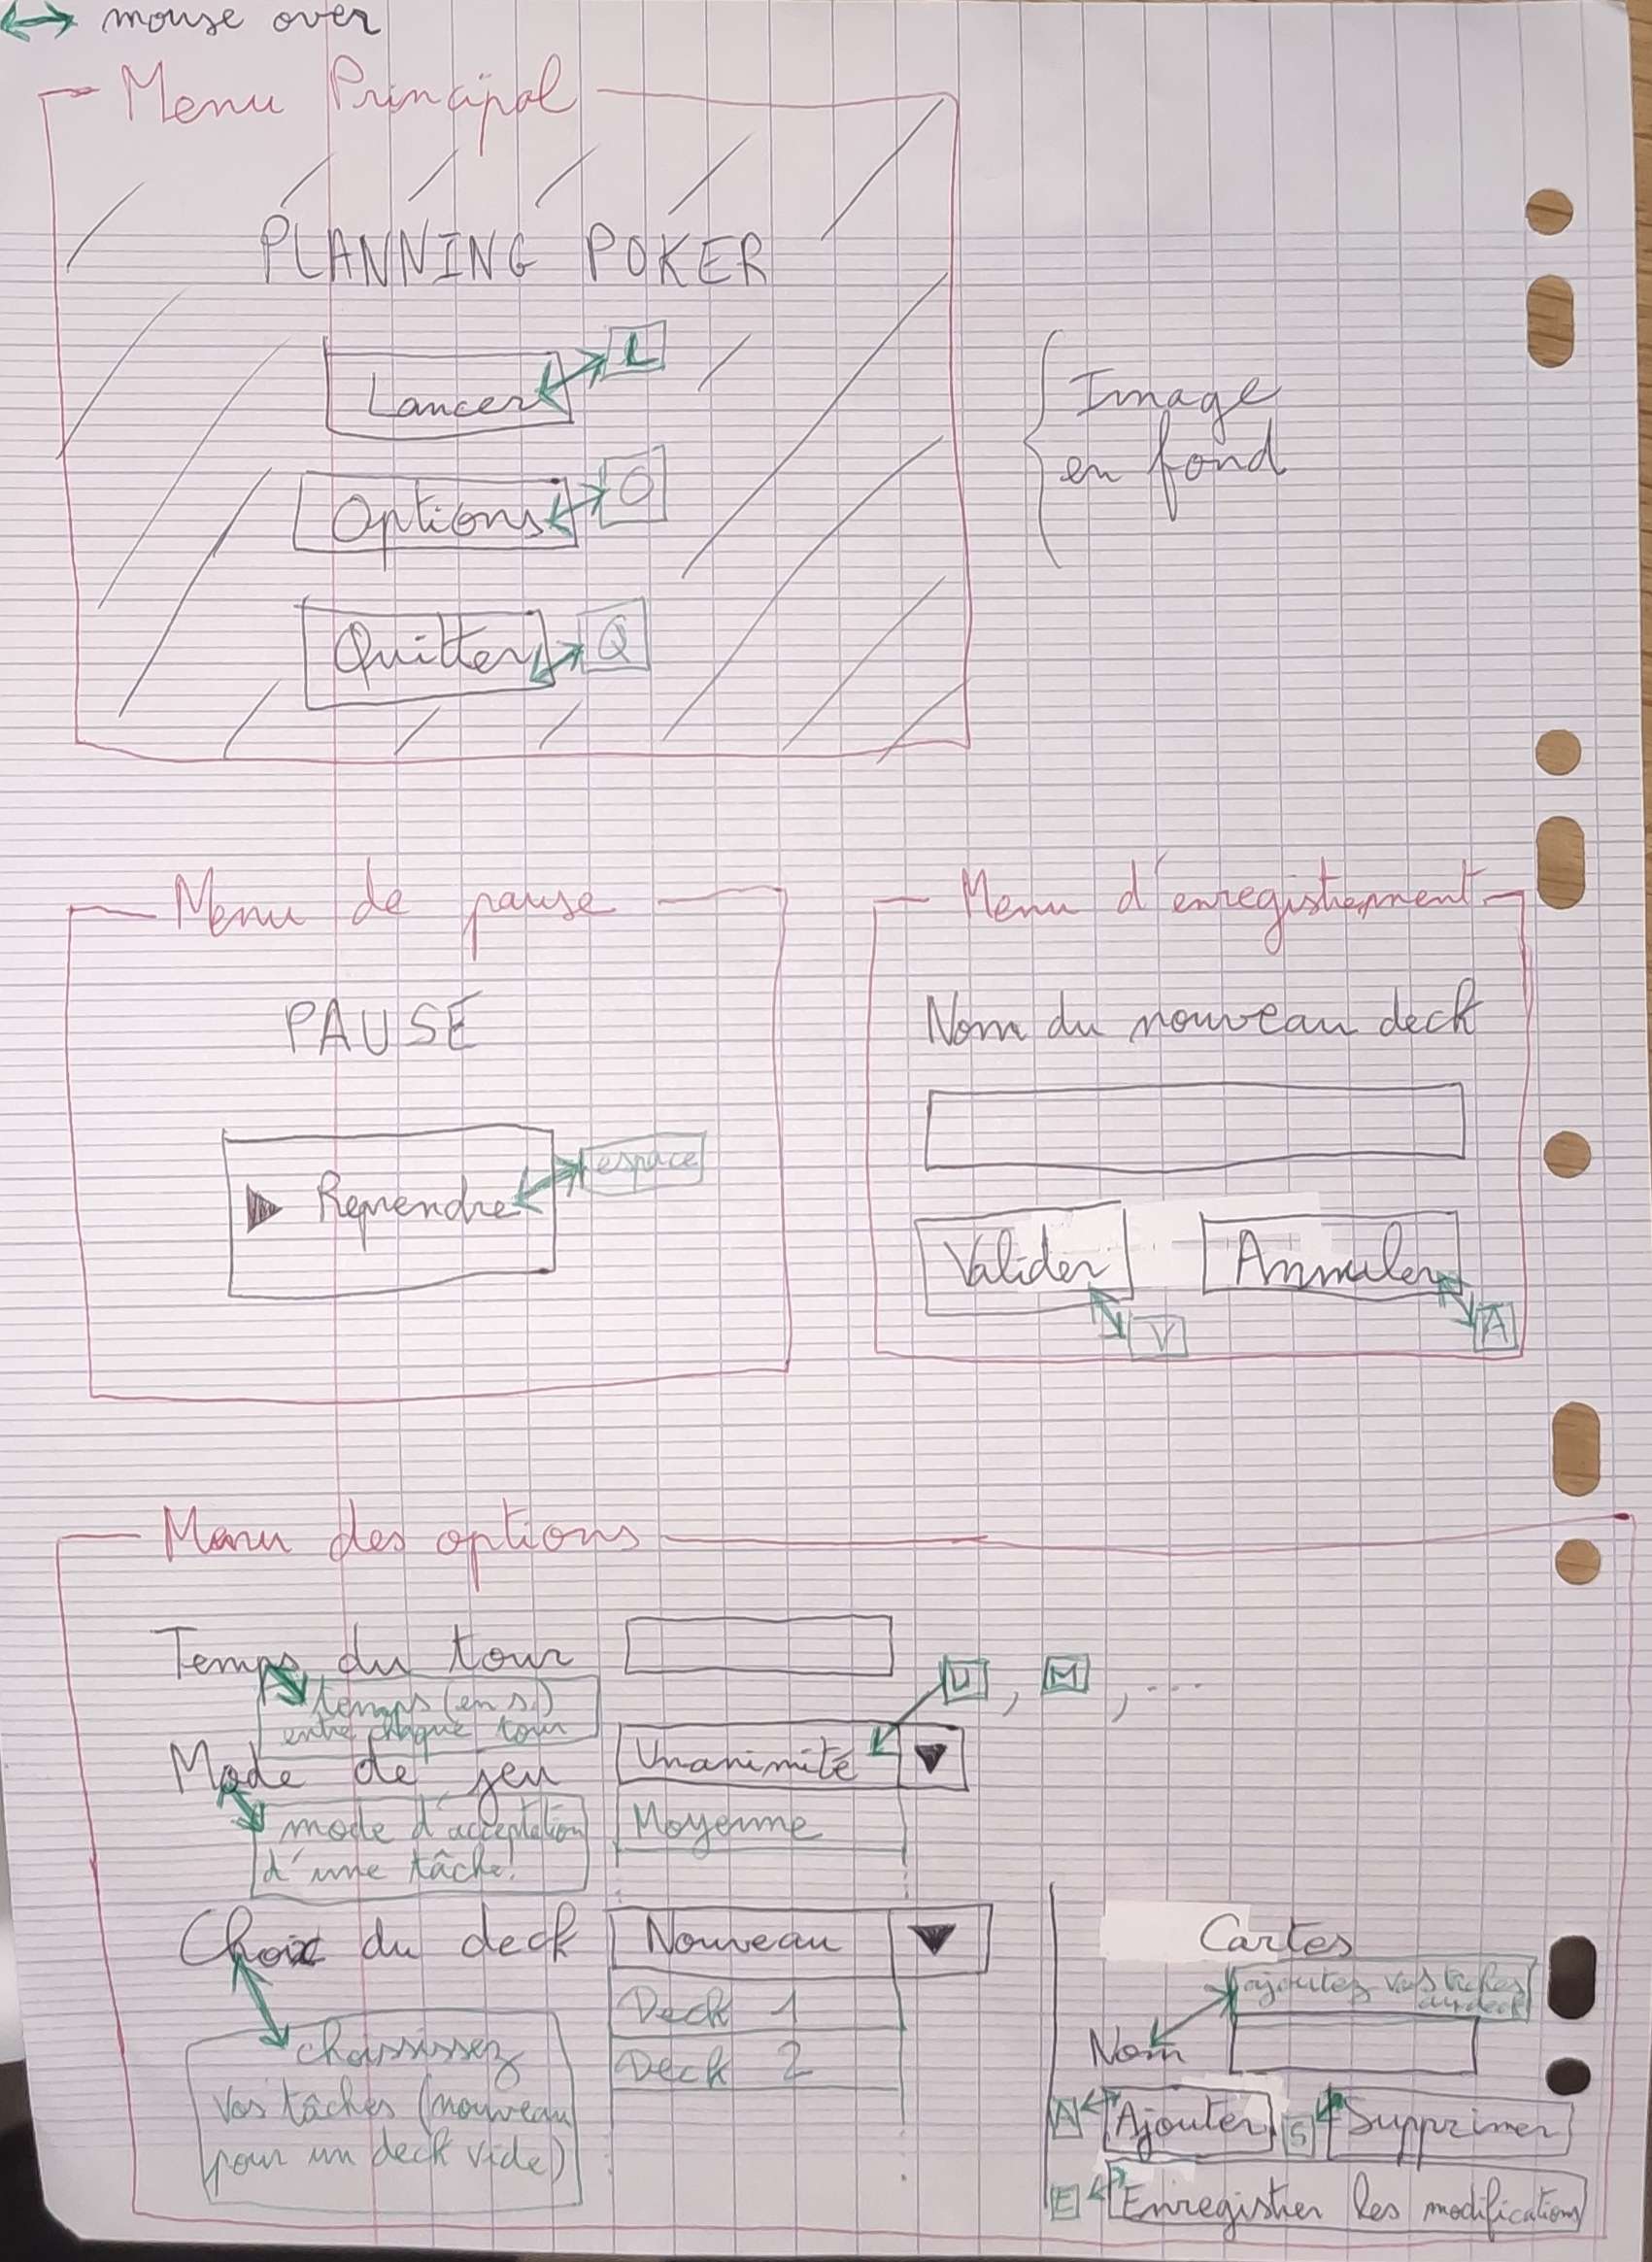 mouse over
Menu Principal
PLANNING POKER
Lancer L
Options O
Quitter Q
Image
en fond
Menu de pause
PAUSE
Reprendre espace
Menu d'enregistrement
Nom du nouveau deck
Valider Annuler
V A
Menu des options
Temps du tour
temps (en s.)
entre chaque tour
U, M, ...
Mode de jeu Unanimité
mode d'acceptation
d'une tâche.
Moyenne
Choix du deck Nouveau
Deck 1
Deck 2
choissisez
vos tâches (nouveau
pour un deck vide)
Cartes
ajoutez vos tâches
au deck
Nom
A Ajouter S Supprimer
E Enregistrer les modifications